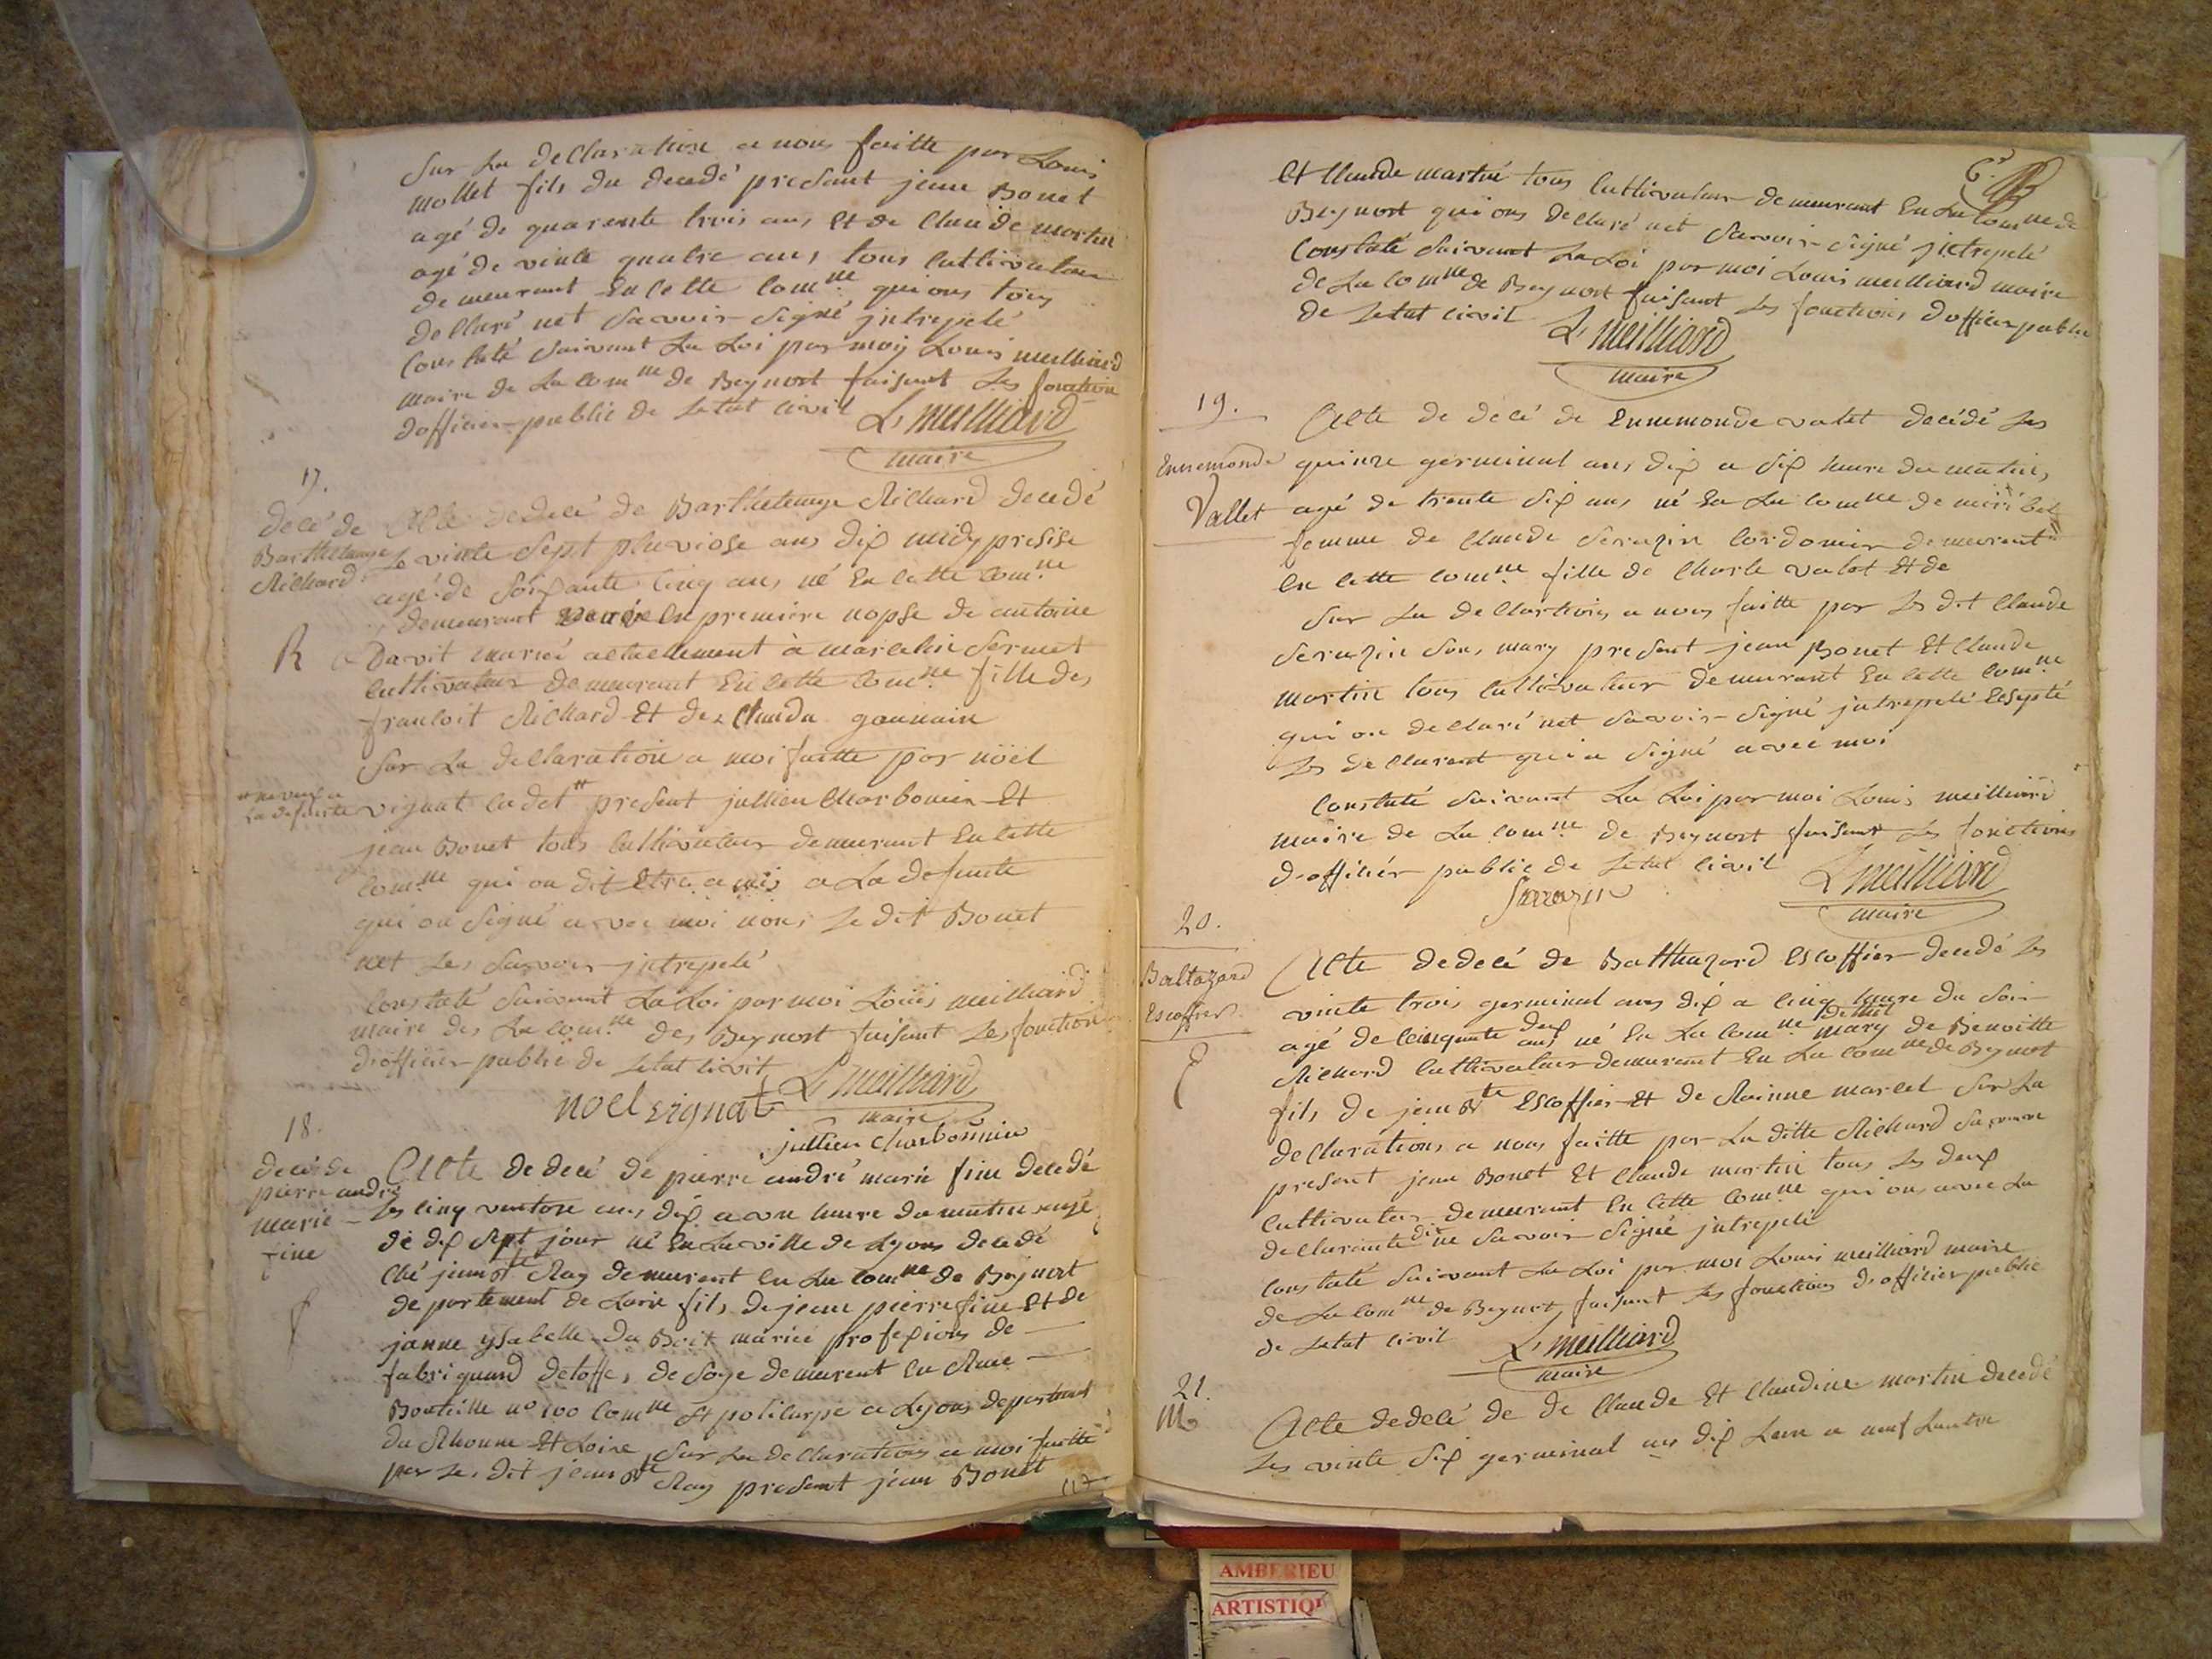 Sur La declaration a nous faitte par Louis
mollet fils du decedé present jean Bonet
agé de quarente trois ans, Et de Claude martin
agé de vinte quatre ans, tous Cultivateur
demeurant En Cette Com.ne qui ons tous
declaré net Savoir Signé jntrepelé
Constaté Suivant La Loi par moy Louis meilliard
maire de La Comne de Beynost faisant Les fonction
dofficier public de Letat Civil L. Meilliard
maire
17.
decé de
Barthelemye
Richard
R
Acte dedecé de Barthelemye Richard decedé
Le vinte Sept pluviose ans dix midy presise
agé de Soixante Cinq ans, né En Cette Com.ne
demeurant En premiere nopse de antoine
David marieé actuellement à marcelin Sermet
Cultivateur demeurant En Cette Com.ne fille des
francoit Richard Et des Clauda gounain
Sur La declaration a moi faitte par nöel
La defunte
vignat Cadet present jullien Charbonier Et
jean Bonet tous Cultivateur demeurant En Cette
Com.ne qui on dit Etre amis a La defunte
qui on Signé avec moi nons Le dit Bonet
net Les Savoir jntrepelé
Constaté Suivant La Loi par moi Loüis meilliard
maire des La Com.ne des Beynost faisant Les fonction
dofficier public de Letat Civit L. Meilliard
noel vignat maire
jullien Charbonnier
18.
decé de
pierre andré
marie
fine
Acte dedecé de pierre andré marie fine decedé
Les Cinq ventose ans, dix a hure du matin agé
de dix Sept jour né En La ville de Lyons decedé
Ché jean Bte Ray demeurent En La Comne de Beynost
departement de Lain fils, de jean pierre fine Et de
janne ysabelle du Boit mariée profexions de
fabriquand detoffe, de Soye demeurent En Rue
Bouteille no 100 Comne St policarpe a Lyons department
du Rhonne Et Loire, Sur La declarations a moi faitte
par Le, dit jean Bte Ray present jean Bonet
6e
Et Claude martin tous Cultivateur demeurant En La Comne de
Beynost qui ons declaré net Savoir Signé jntrepelé
Constaté Suivant La Loi par moi Louis meilliard maire
de La Comne de Beynost faisant Les fonctions dofficier public
de Letat Civil L. Meilliard
maire
19.
Ennemonde
Vallet
Acte de decé de Ennemonde valet decédé Les
quinze germinal ans, dix a Six hure du matin,
agé de trente Six ans, né En La Comne de miribel
femme de Claude Serazin Cordonier demeurent
En Cette Comne fille de Charle valet Et de
Sur La declartions a nous faitte par Les dit Claude
Serazin Son, mary present jean Bonet Et Claude
martin tous Cultivateur demeurant En Cette Com.ne
qui on declaré net Savoir Signé jntrepelé Exsepté
Les declarent qui a Signé avec moi
Constaté Suivant La Loi par moi Louis meilliard
maire de La Comne de Beynost faisant Les fonctions
dofficiér public de Letat Civil L. Meilliard
Sarrazin maire
20.
Baltazard
Escoffier
E
Acte dedecé de Balthazard Escoffier decedé Les
vinte trois germinal ans dix a Cinq hure du Soir
agé de Cinquante deux ans, né En La Comne mary de Benoitte
Richard Cultivateur demeurant En La Comne de Beynost
fils de jean Bte Escoffier Et de Rainne marcel Sur La
declarations a nous faitte par La ditte Richard Sa
present jean Bonet Et Claude martin tous Les deux
Cultivateur demeurant En Cette Comne qui ons avec La
declarante dit ne Savoir Signé jntrepelé
Constaté Suivant La Loi par moi Louis meilliard maire
de La Comne de Beynost, faisant Les fonctions dofficier public
de Letat Civil L. Meilliard
maire
21.
M
Acte dedecé de de Claude Et Claudine martin decedé
Les vinte Six germinal ans dix Lun a neuf Lautre
AMBERIEU
ARTISTIQU